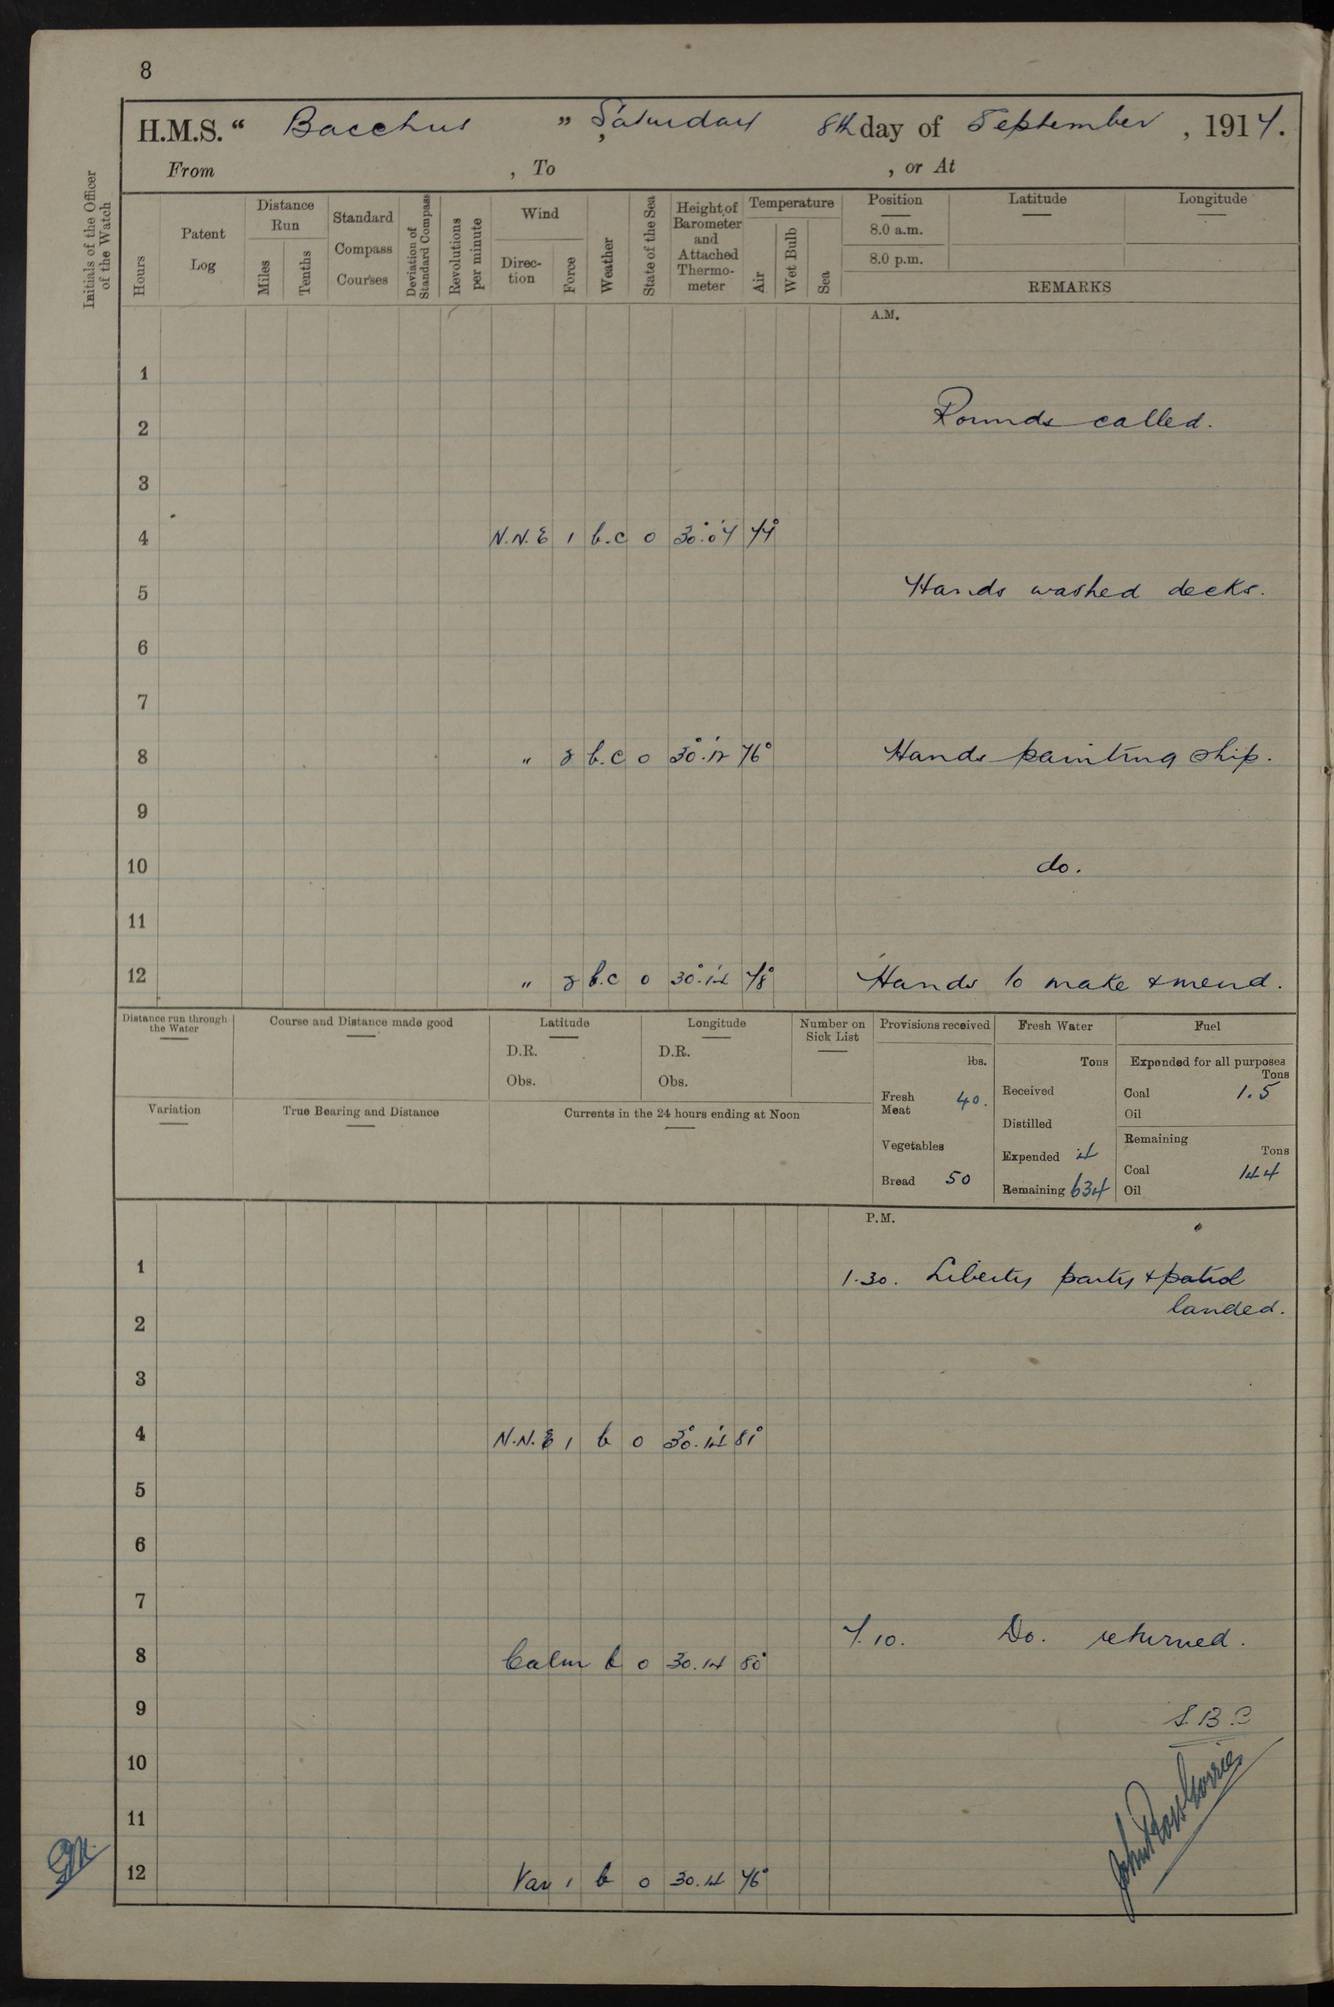 8
H.M.S. “ Bacchus ” , Saturday 8th day of September , 1917.
From , To , or At
Initials of the Officer of the Watch
Hours
Patent Log
Distance Run
Miles
Tenths
Standard Compass Courses
Deviation of Standard Compass
Revolutions per minute
Wind
Direction
Force
Weather
State of the Sea
Height of Barometer and Attached Thermometer
Temperature
Air
Wet Bulb
Sea
Position
8.0 a.m.
8.0 p.m.
Latitude
Longitude
REMARKS
A.M.
1
2 Rounds called.
3
4 N.N.E 1 b.c 0 30.04 74°
5 Hands washed decks.
6
7
8 " 2 b.c 0 30.12 76° Hands painting ship.
9
10 do.
11
12 " 2 b.c 0 30.14 78° Hands to make & mend.
Distance run through the Water
Course and Distance made good
Latitude
D.R.
Obs.
Longitude
D.R.
Obs.
Number on Sick List
Variation
True Bearing and Distance
Currents in the 24 hours ending at Noon
Provisions received
lbs.
Fresh Meat 40.
Vegetables
Bread 50
Fresh Water
Tons
Received
Distilled
Expended 4
Remaining 634
Fuel
Expended for all purposes
Tons
Coal 1.5
Oil
Remaining
Tons
Coal 144
Oil
P.M.
1 1.30. Liberty party & patrol
landed.
2
3
4 N.N.E 1 b 0 30.14 81°
5
6
7
7.10. Do. returned.
8 Calm b 0 30.14 80°
9 S.B.C
10
11
12 Var 1 b 0 30.14 76°